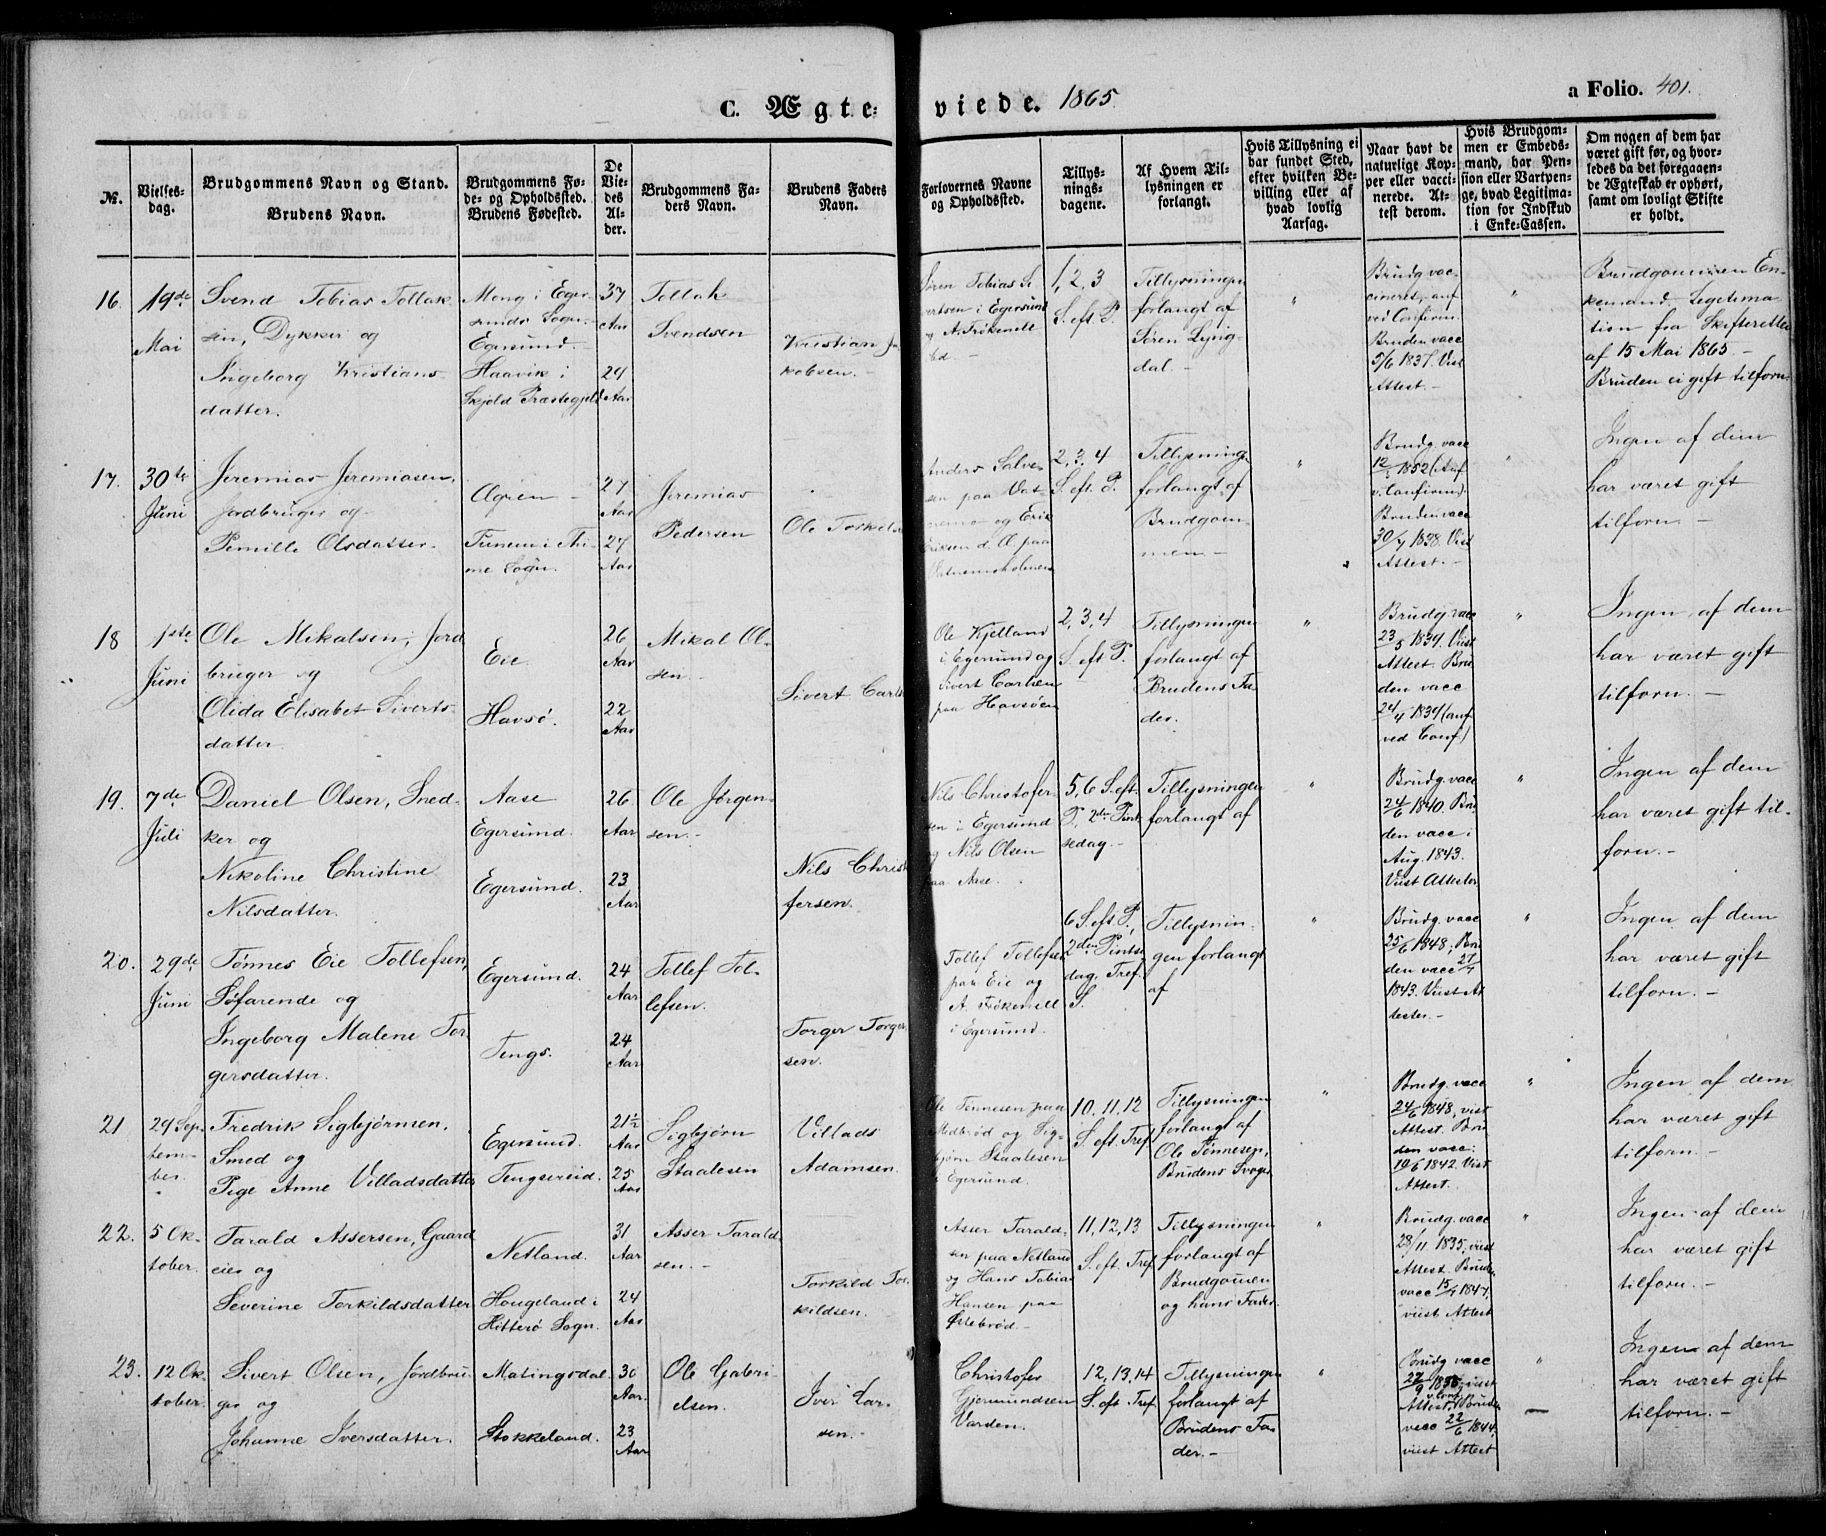 C. Ægteviede. 1865.
a Folio. 401.
No.
Vielsesdag.
Brudgommens Navn og Stand.
Brudens Navn.
Brudgommens Føde- og Opholdsted.
Brudens Fødested.
De Viedes Alder.
Brudgommens Faders Navn.
Brudens Faders Navn.
Forlovernes Navne og Opholdsted.
Tillysningsdagene.
Af Hvem Tillysningen er forlangt.
Hvis Tillysning ei har fundet Sted, efter hvilken Bevilling eller af hvad lovlig Aarsag.
Naar havt de naturlige Kopper eller vaccinerede. Attest derom.
Hvis Brudgommen er Embedsmand, har Pension eller Vartpenge, hvad Legitimation for Indskud i Enke-Cassen.
Om nogen af dem har været gift før, og hvorledes da det foregaaende Ægteskab er ophørt, samt om lovligt Skifte er holdt.
16. 19de Mai
Svend Tobias Tollaksen, Dykker og
Ingeborg Kristiansdatter.
Mong i Egersunds Sogn. Egersund
Haavik i Skjold Præstegjeld
37 Aar
24 Aar
Tollak Svendsen
Kristian Jakobsen.
Søren Tobias Sivertsen i Egersund
1, 2, 3 S. eft. P.
Tillysningen forlangt af Søren Lyngdal.
"
Brudg. vaccineret, anf. ved Confirm.
Bruden vacc 5/6 1837. Viist Attest.
"
Brudgommen Enkemand, Legetimation fra Skifteretten af 15 Mai 1865
Bruden ei gift tilforn.
17. 30te Juni
Jeremias Jeremiasen, Jordbruger og
Pernille Olsdatter.
Ogrein
Tunem i Thime Sogn.
27 Aar
27 Aar
Jeremias Pedersen
Ole Torkels
Anders Salvesen paa
og Erik Eriksen
2, 3, 4 S. eft. P.
Tillysningen forlangt af Brudgommen.
"
Brudg. vacc 1852 (Anf. v. Confirm.)
Bruden vacc 30/7 1838. Viist Attest.
"
Ingen af dem har været gift tilforn.
18 1ste Juni
Ole Mikalsen, Jordbruger og
Olida Elisabet Sivertsdatter
Eie.
Havsø.
26 Aar
22 Aar
Mikal Olsen
Sivert Carls
Ole Kjelland i Egersund og Sivert Carlsen paa Havsøen
2, 3, 4 S. eft. P.
Tillysningen forlangt af Brudens Fader.
"
Brudg. vacc 23/5 1839. Viist Attest. Bruden vacc 24/4 1839 (anf ved Conf.)
"
Ingen af dem har været gift tilforn.
19. 7de Juli
Daniel Olsen, Snedker og
Nikoline Christine Nilsdatter.
Aase Egersund.
Egersund.
26 Aar
23 Aar
Ole Jørgensen.
Nils Christofersen.
Nils Christofersen i Egersund og Nils Olsen paa Aase.
5, 6 S. eft. P, 2den Pintsedag.
Tillysningen forlangt af
"
Brudg. vacc 24/6 1840. Bruden vacc i Aug. 1843. Viist Attester
"
Ingen af dem har været gift tilforn.
20. 29de Juni
Tønnes Eie Tollefsen, Søfarende og
Ingeborg Malene Torgersdatter.
Egersund.
Tengs.
24 Aar
24 Aar
Tollef Tollefsen.
Torger Torgersen.
Tollef Tollefsen paa Eie og A. Frøkenell i Egersund.
6 S. eft P., 2den Pintsedag, Tref. S.
Tillysningen forlangt af
"
Brudg. vacc 25/6 1848; Bruden vacc 27/7 1843. Viist Attester.
"
Ingen af dem har været gift tilforn.
21 29 September
Fredrik Sigbjørnsen, Smed og
Pige Anne Villadsdatter
Egersund.
Tengsereid.
21½ Aar
25 Aar
Sigbjørn Staalesen
Villads Adamsen.
Ole Tønnesen paa Midbrød og Sigbjørn Staalesen i Egersund.
10, 11, 12 S. eft. Tref
Tillysningen forlangt af Ole Tønnesen, Brudens Svoger
"
Brudg. vacc 24/6 1848, viist Attest. Bruden vacc: 19/6 1842. Viist Attest.
"
Ingen af dem har været gift tilforn.
22. 5 Oktober.
Tarald Assersen, Gaardeier og
Severine Torkildsdatter
Netland.
Hougeland i Hitterø Sogn.
31 Aar
24 Aar
Asser Taraldsen.
Torkild Torkildsen.
Asser Taraldsen paa Netland og Hans Tobias Hansen paa Østebrød.
11, 12, 13 S. eft. Tref
Tillysningen forlangt af Brudgommen og hans Fader.
"
Brudg. vacc 28/11 1835, viist Attest. Bruden vacc 15/7 1841, viist Attest
"
Ingen af dem har været gift tilforn.
23. 12 Oktober.
Sivert Olsen, Jordbruger og
Johanne Iversdatter.
Matingsdal.
Stokkeland.
30 Aar.
23 Aar
Ole Gabrielsen.
Iver Larsen.
Christofer Gjermundsen Varden.
12, 13, 14 S. eft Tref
Tillysningen forlangt af Brudens Fader.
"
Brudg. vacc 27/9 viist Attest, Bruden vacc 22/6 1844, viist Attest
"
Ingen af dem har været gift tilforn.